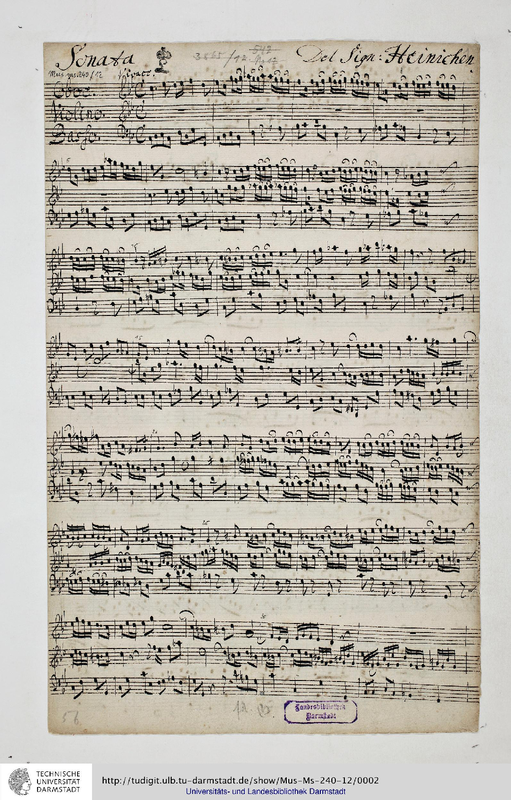 Sonata Del Sign: Heinichen
Vivace.
Oboe.
Violino.
Basso.
Landesbibliothek
Darmstadt
TECHNISCHE
UNIVERSITÄT
DARMSTADT
http://tudigit.ulb.tu-darmstadt.de/show/Mus-Ms-240-12/0002
Universitäts- und Landesbibliothek Darmstadt